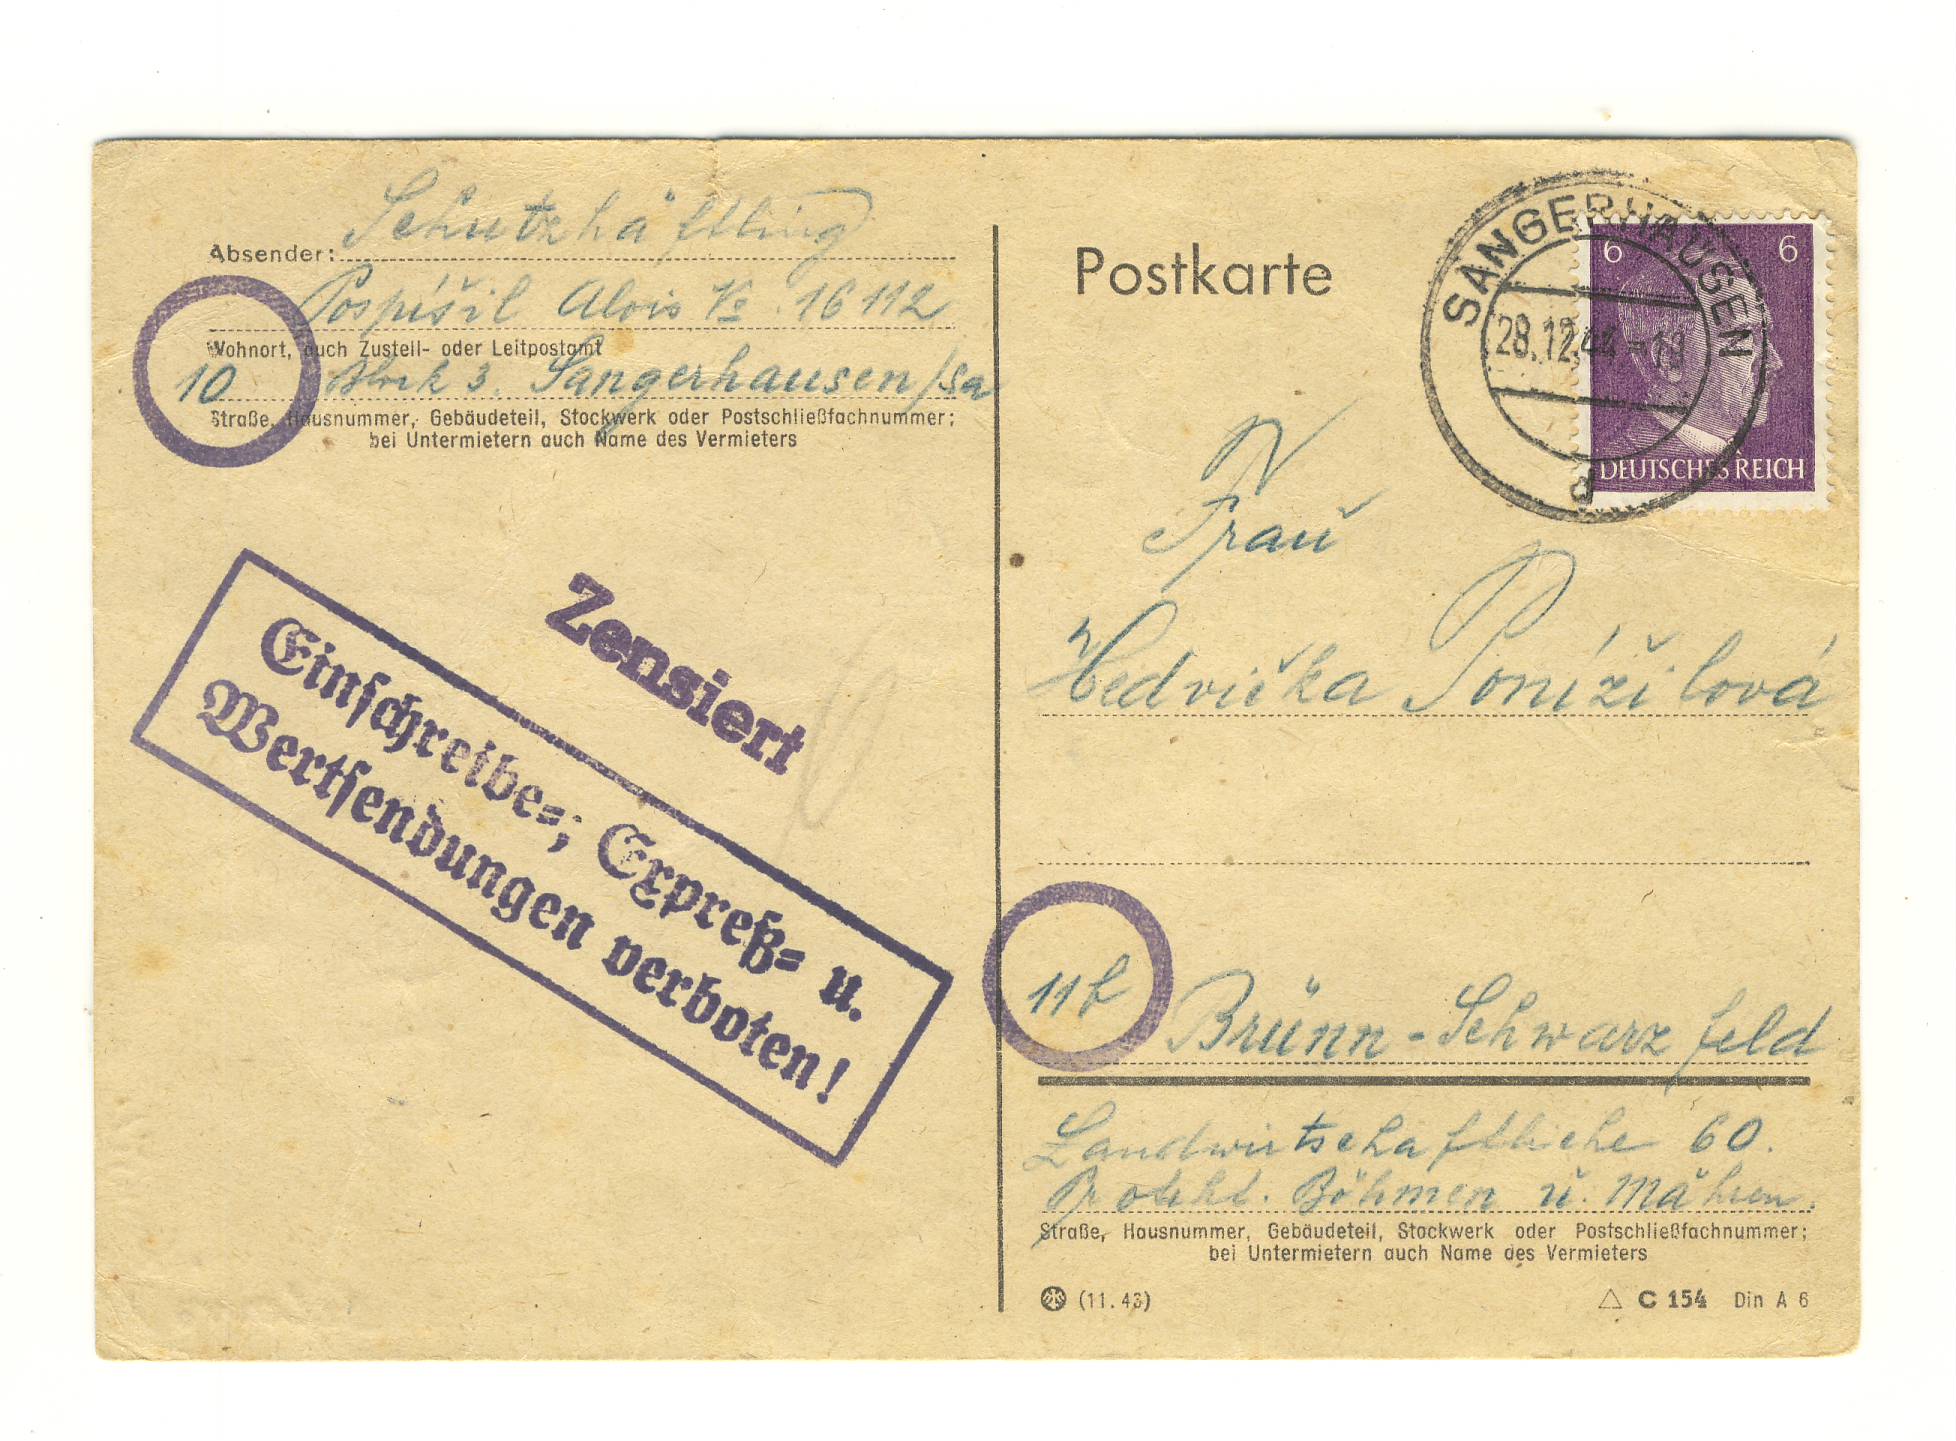 Absender: Schutzhäftling
Pospíšil Alois Kz. 16112
Wohnort, auch Zustell- oder Leitpostamt
10 Block 3. Sangerhausen/Sa
Straße, Hausnummer, Gebäudeteil, Stockwerk oder Postschließfachnummer;
bei Untermietern auch Name des Vermieters
Zensiert
Einschreibe=, Expreß= u.
Wertsendungen verboten!
Postkarte
SANGERHAUSEN
28.12.44-19
d
6 6
DEUTSCHES REICH
Frau
Hedvička Ponížilová
11b Brünn-Schwarzfeld
Landwirtschaftliche 60.
Protekt. Böhmen u. Mähren.
Straße, Hausnummer, Gebäudeteil, Stockwerk oder Postschließfachnummer;
bei Untermietern auch Name des Vermieters
(11.43)
C 154 Din A 6